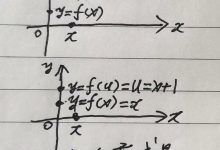 y=f(x)
0 x x
y
y=f(u)=u=x+1
y=f(x)=x
0 x x